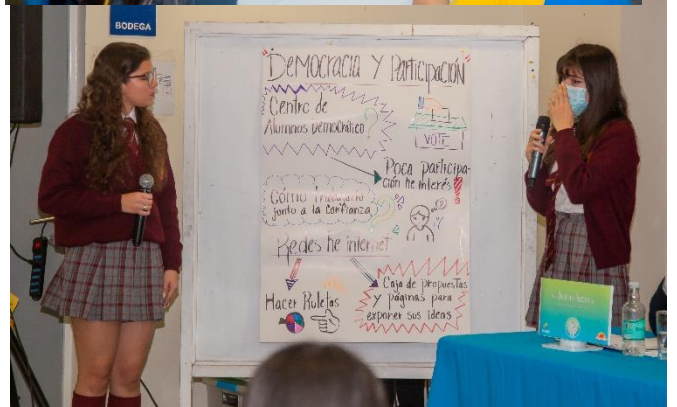 BODEGA
"Democracia y Participación"
Centro de
Alumnos Democrático
?
VOTE
Poca participa-
ción he interés!
Cómo trabajarlo
junto a la confianza
Redes he internet
Hacer Ruletas
Caja de propuestas
y páginas para
exponer sus ideas